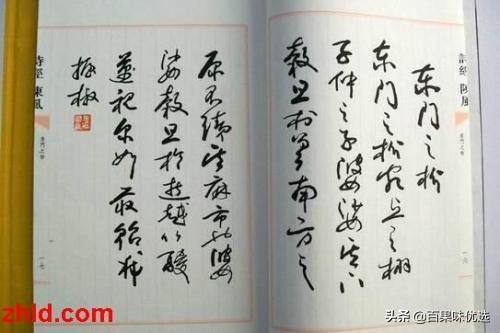 詩經 陳風
东门之枌
一六
东门之枌
东门之枌宛丘之栩
子仲之子婆娑其下
穀旦於差南方之
原不绩其麻市也婆
娑穀旦於逝越以鬷
邁视尔如荍贻我
握椒
东门之枌
一七
zhld.com
头条@百集味优选